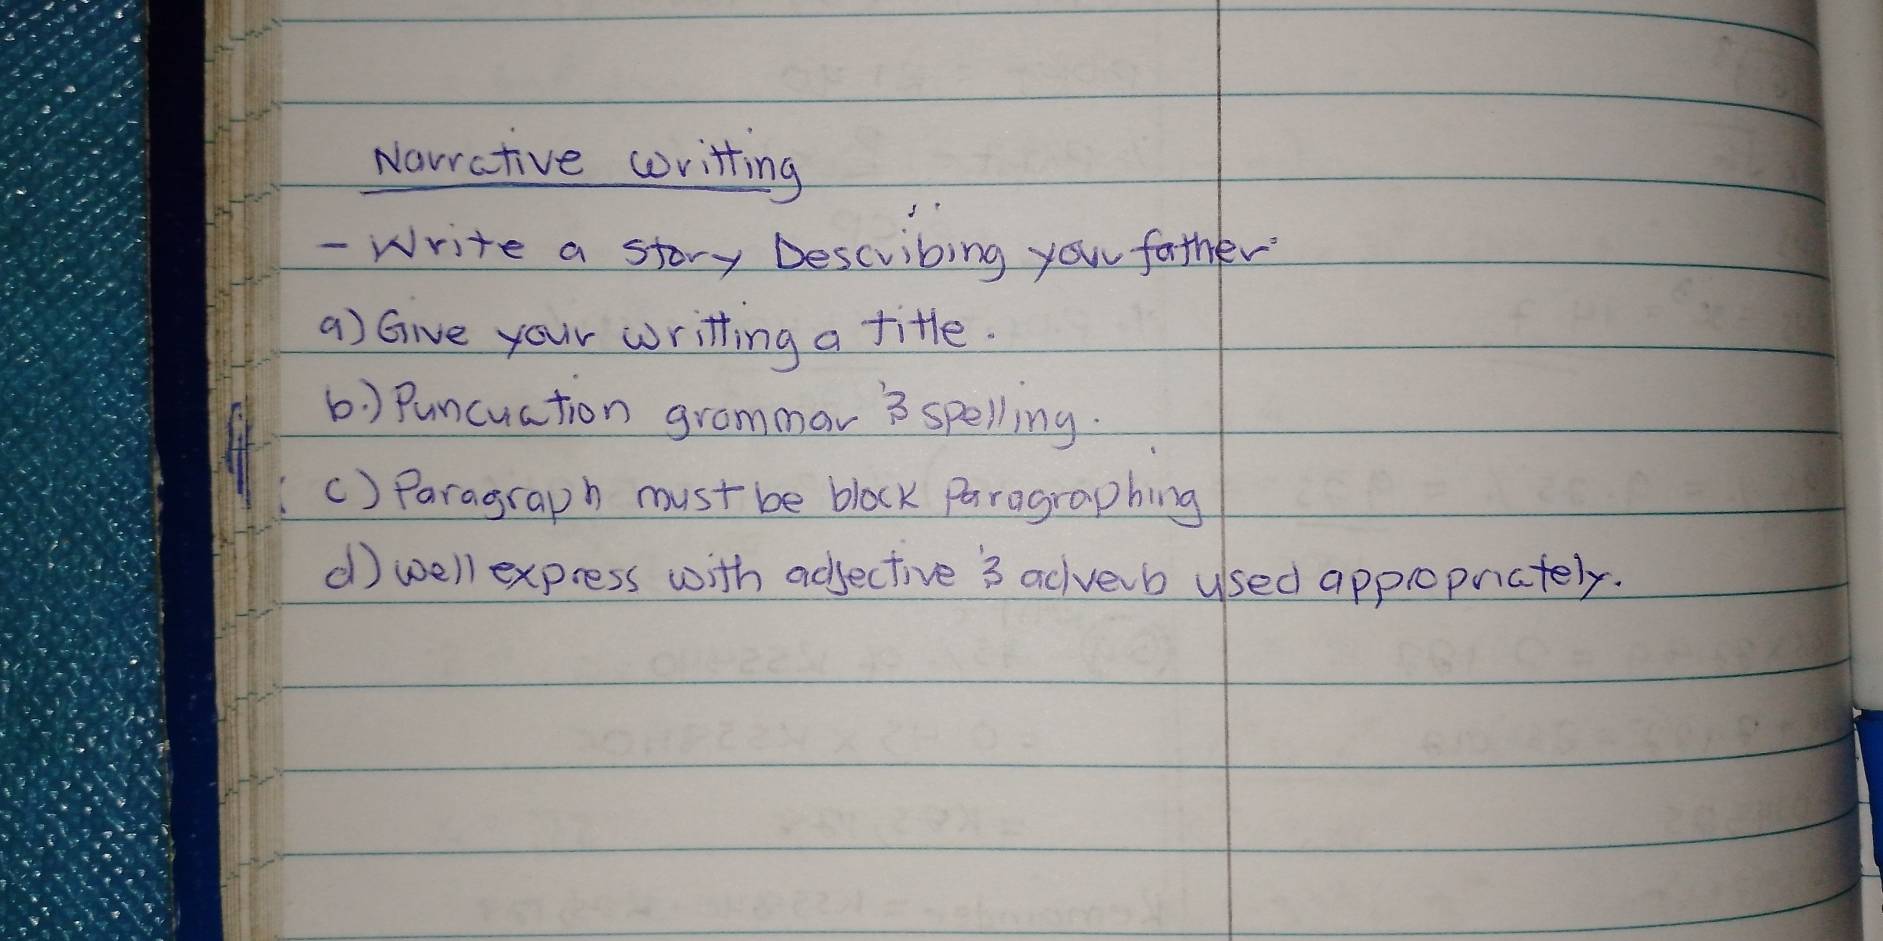 Narrative writting
- Write a story Describing your father
a) Give your writting a title.
b.) Puncuation grammar & spelling.
c) Paragraph must be block Paragraphing
d) well express with adjective & adverb used appropriately.